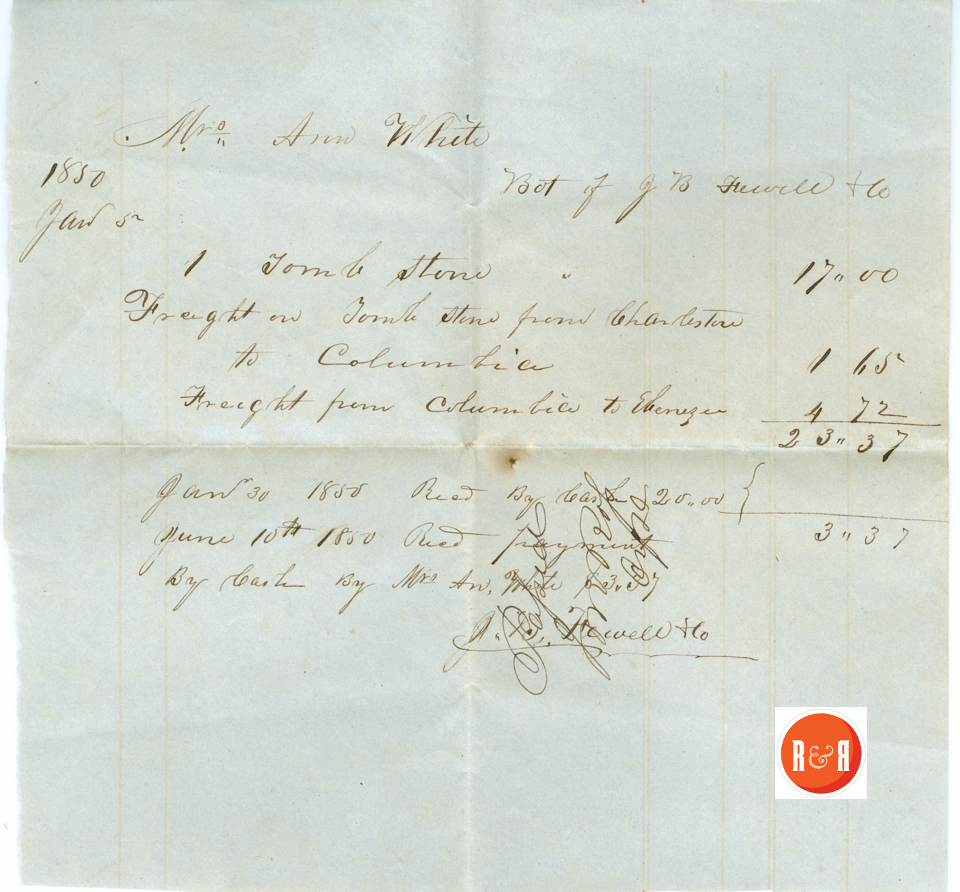 Mrs. Ann White
1850
Bot of J B Fewell & Co
Jan 5
1 Tomb Stone " 17" 00
Freight on Tomb Stone from Charleston
to Columbia 1 65
Freight from Columbia to Ebenezer 4 72
23" 37
Jany 30 1850 Recd By Cash 20,,00
3" 37
June 10th 1850 Recd payment
By Cash By Mrs An, White $3"37
J. B. Fewell & Co
R&R